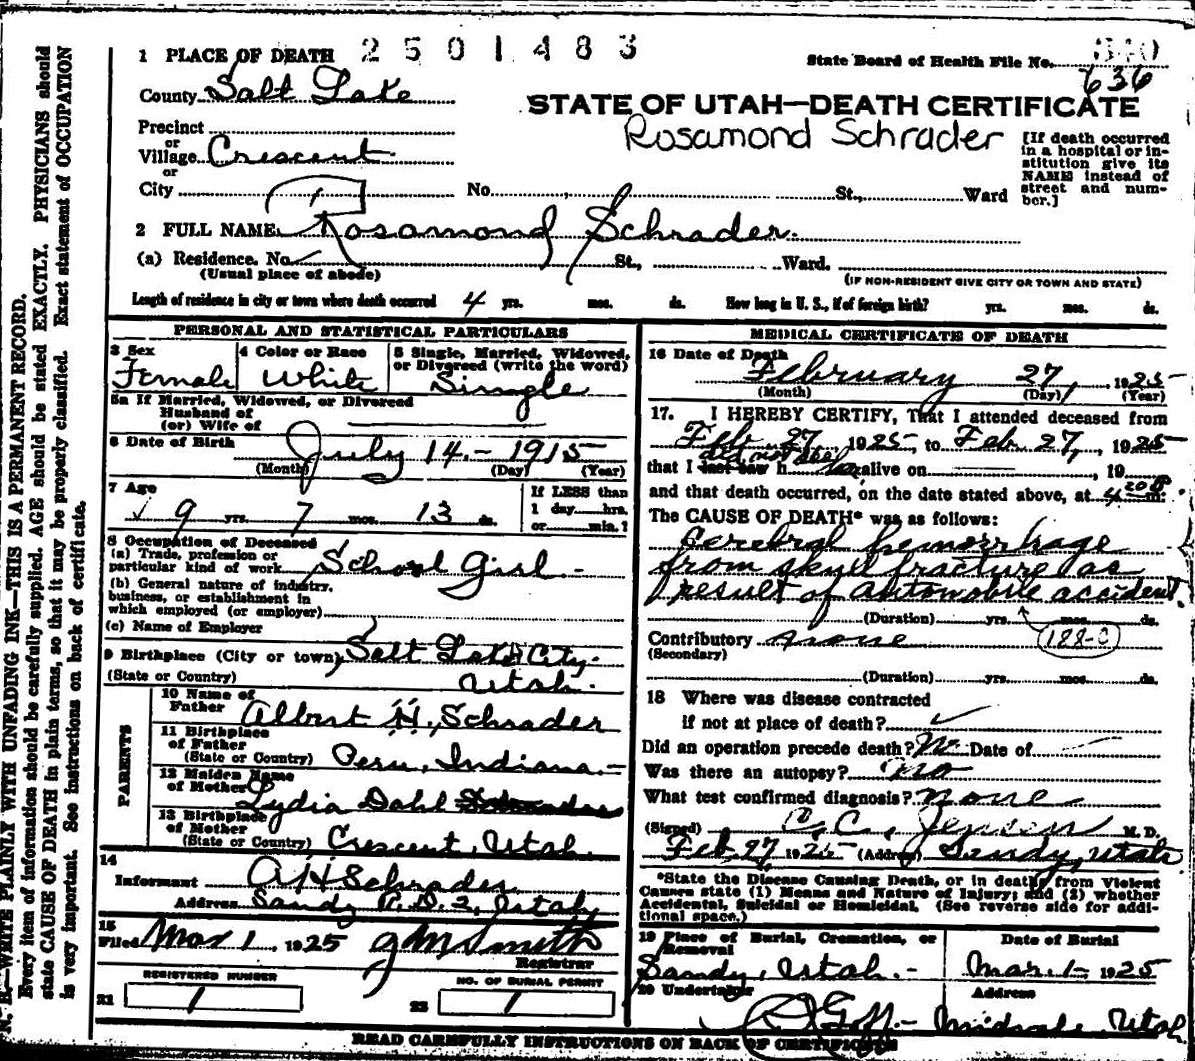 1 PLACE OF DEATH 2501483
State Board of Health File No. 340
636
County Salt Lake
STATE OF UTAH—DEATH CERTIFICATE
Rosamond Schrader
Precinct
or
Village Crescent
or
City No. St., Ward
[If death occurred
in a hospital or in-
stitution give its
NAME instead of
street and num-
ber.]
2 FULL NAME Rosamond Schrader.
(a) Residence. No. St., Ward.
(Usual place of abode)
(IF NON-RESIDENT GIVE CITY OR TOWN AND STATE)
Length of residence in city or town where death occurred 4 yrs. mos. ds. How long in U. S., if of foreign birth? yrs. mos. ds.
PERSONAL AND STATISTICAL PARTICULARS
3 Sex
Female
4 Color or Race
White
5 Single, Married, Widowed,
or Divorced (write the word)
Single
5a If Married, Widowed, or Divorced
Husband of
(or) Wife of
6 Date of Birth
July 14 - 1915
(Month) (Day) (Year)
7 Age
9 yrs. 7 mos. 13 ds.
If LESS than
1 day hrs.
or min.?
8 Occupation of Deceased
(a) Trade, profession or
particular kind of work School Girl -
(b) General nature of industry,
business, or establishment in
which employed (or employer)
(c) Name of Employer
9 Birthplace (City or town) Salt Lake City.
(State or Country) Utah.
PARENTS
10 Name of
Father Albert H. Schrader
11 Birthplace
of Father
(State or Country) Peru, Indiana.
12 Maiden Name
of Mother Lydia Dahl
13 Birthplace
of Mother
(State or Country) Crescent, Utah.
14
Informant A H Schrader
Address Sandy R.D.2, Utah
15
Filed Mar 1, 1925
Registrar
REGISTERED NUMBER
21 1
NO. OF BURIAL PERMIT
22 1
MEDICAL CERTIFICATE OF DEATH
16 Date of Death
February 27, 1925
(Month) (Day) (Year)
17. I HEREBY CERTIFY, That I attended deceased from
Feb 27 1925 to Feb. 27, 1925
did not see
that I last saw h alive on 19
and that death occurred, on the date stated above, at 4 20 m.
The CAUSE OF DEATH* was as follows:
Cerebral hemorrhage
from skull fracture as
result of automobile accident.
(Duration) yrs. mos. ds.
Contributory none
(Secondary)
188-C
(Duration) yrs. mos. ds.
18 Where was disease contracted
if not at place of death?
Did an operation precede death? No Date of
Was there an autopsy? no
What test confirmed diagnosis? none
(Signed) C. C. Jensen M. D.
Feb 27 1925 (Address) Sandy, Utah
*State the Disease Causing Death, or in deaths from Violent
Causes state (1) Means and Nature of Injury; and (2) whether
Accidental, Suicidal or Homicidal. (See reverse side for addi-
tional space.)
19 Place of Burial, Cremation, or
Removal
Sandy, Utah. -
Date of Burial
Mar. 1 - 1925
20 Undertaker
Address
Midvale, Utah
READ CAREFULLY INSTRUCTIONS ON BACK OF CERTIFICATE
N. B.—WRITE PLAINLY WITH UNFADING INK—THIS IS A PERMANENT RECORD.
Every item of information should be carefully supplied. AGE should be stated EXACTLY. PHYSICIANS should
state CAUSE OF DEATH in plain terms, so that it may be properly classified. Exact statement of OCCUPATION
is very important. See instructions on back of certificate.